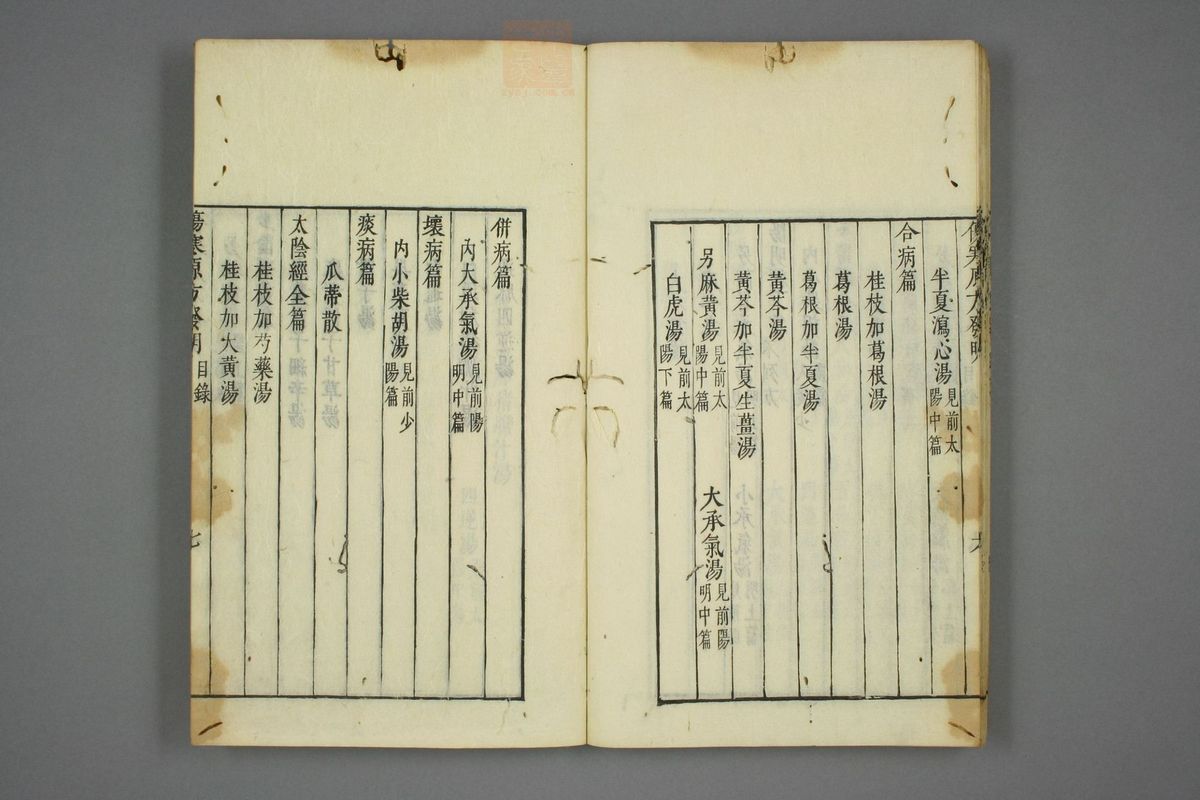 半夏瀉心湯見前太陽中篇
合病篇
桂枝加葛根湯
葛根湯
葛根加半夏湯
黃芩湯
黃芩加半夏生薑湯
另麻黃湯見前太陽中篇 大承氣湯見前陽明中篇
白虎湯見前太陽下篇
併病篇
內大承氣湯見前陽明中篇
壞病篇
內小柴胡湯見前少陽篇
痰病篇
瓜蒂散
太陰經全篇
桂枝加芍藥湯
桂枝加大黃湯
傷寒源方發明 目錄
七